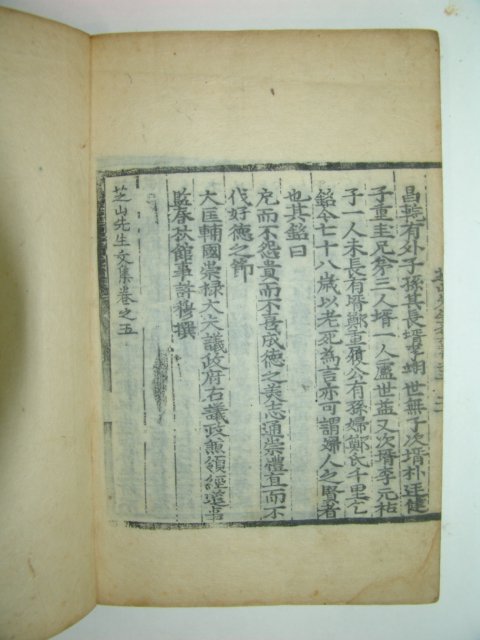 昌乾有外子孫其長壻李翊世無子次壻朴廷健
子重圭兄弟三人壻一人盧世益又次壻李元祜
子一人未長有壻鄭重履公有孫婦鄭氏千里乞
銘今七十八歲以老死爲言亦可謂婦人之賢者
也其銘曰
戹而不怨貴而不善成德之美志通崇禮直而不
伐好德之節
大匡輔國崇祿大夫議政府右議政兼領經筵事
監春秋館事許穆撰
芝山先生文集卷之五